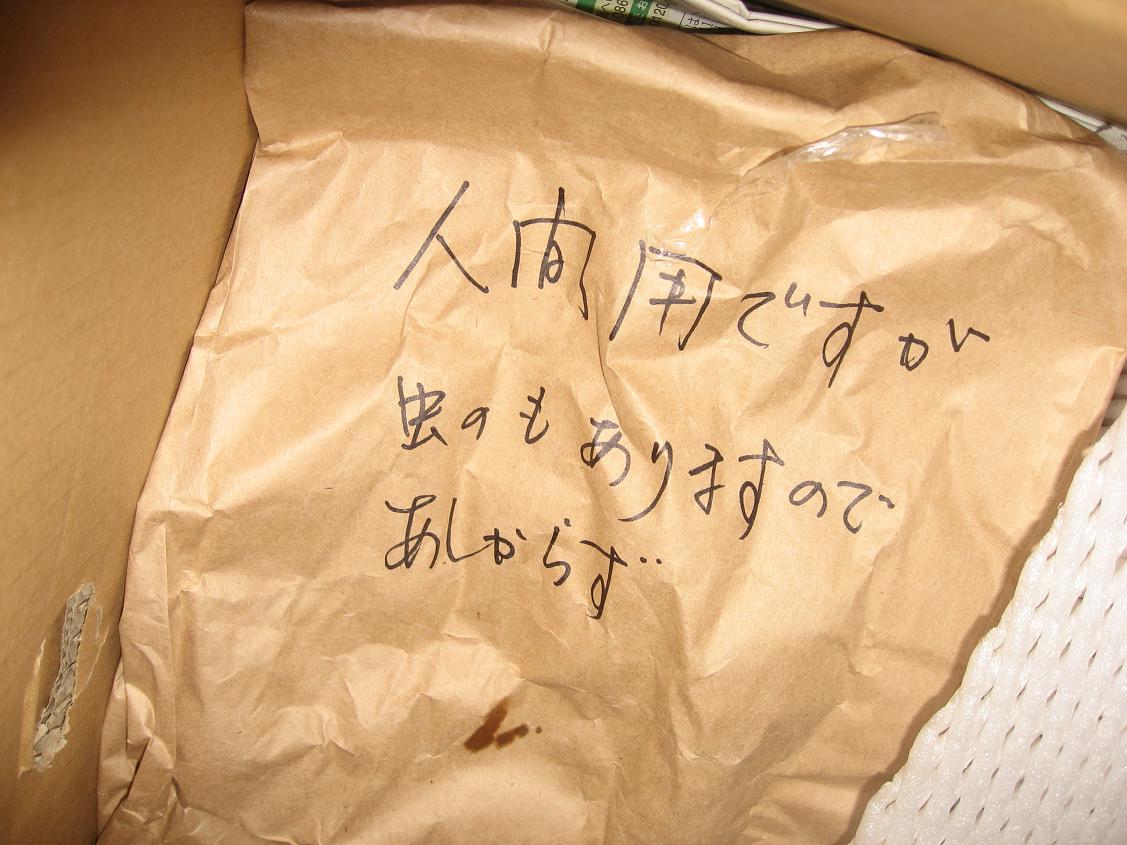 人間用ですが
虫のもありますので
あしからず